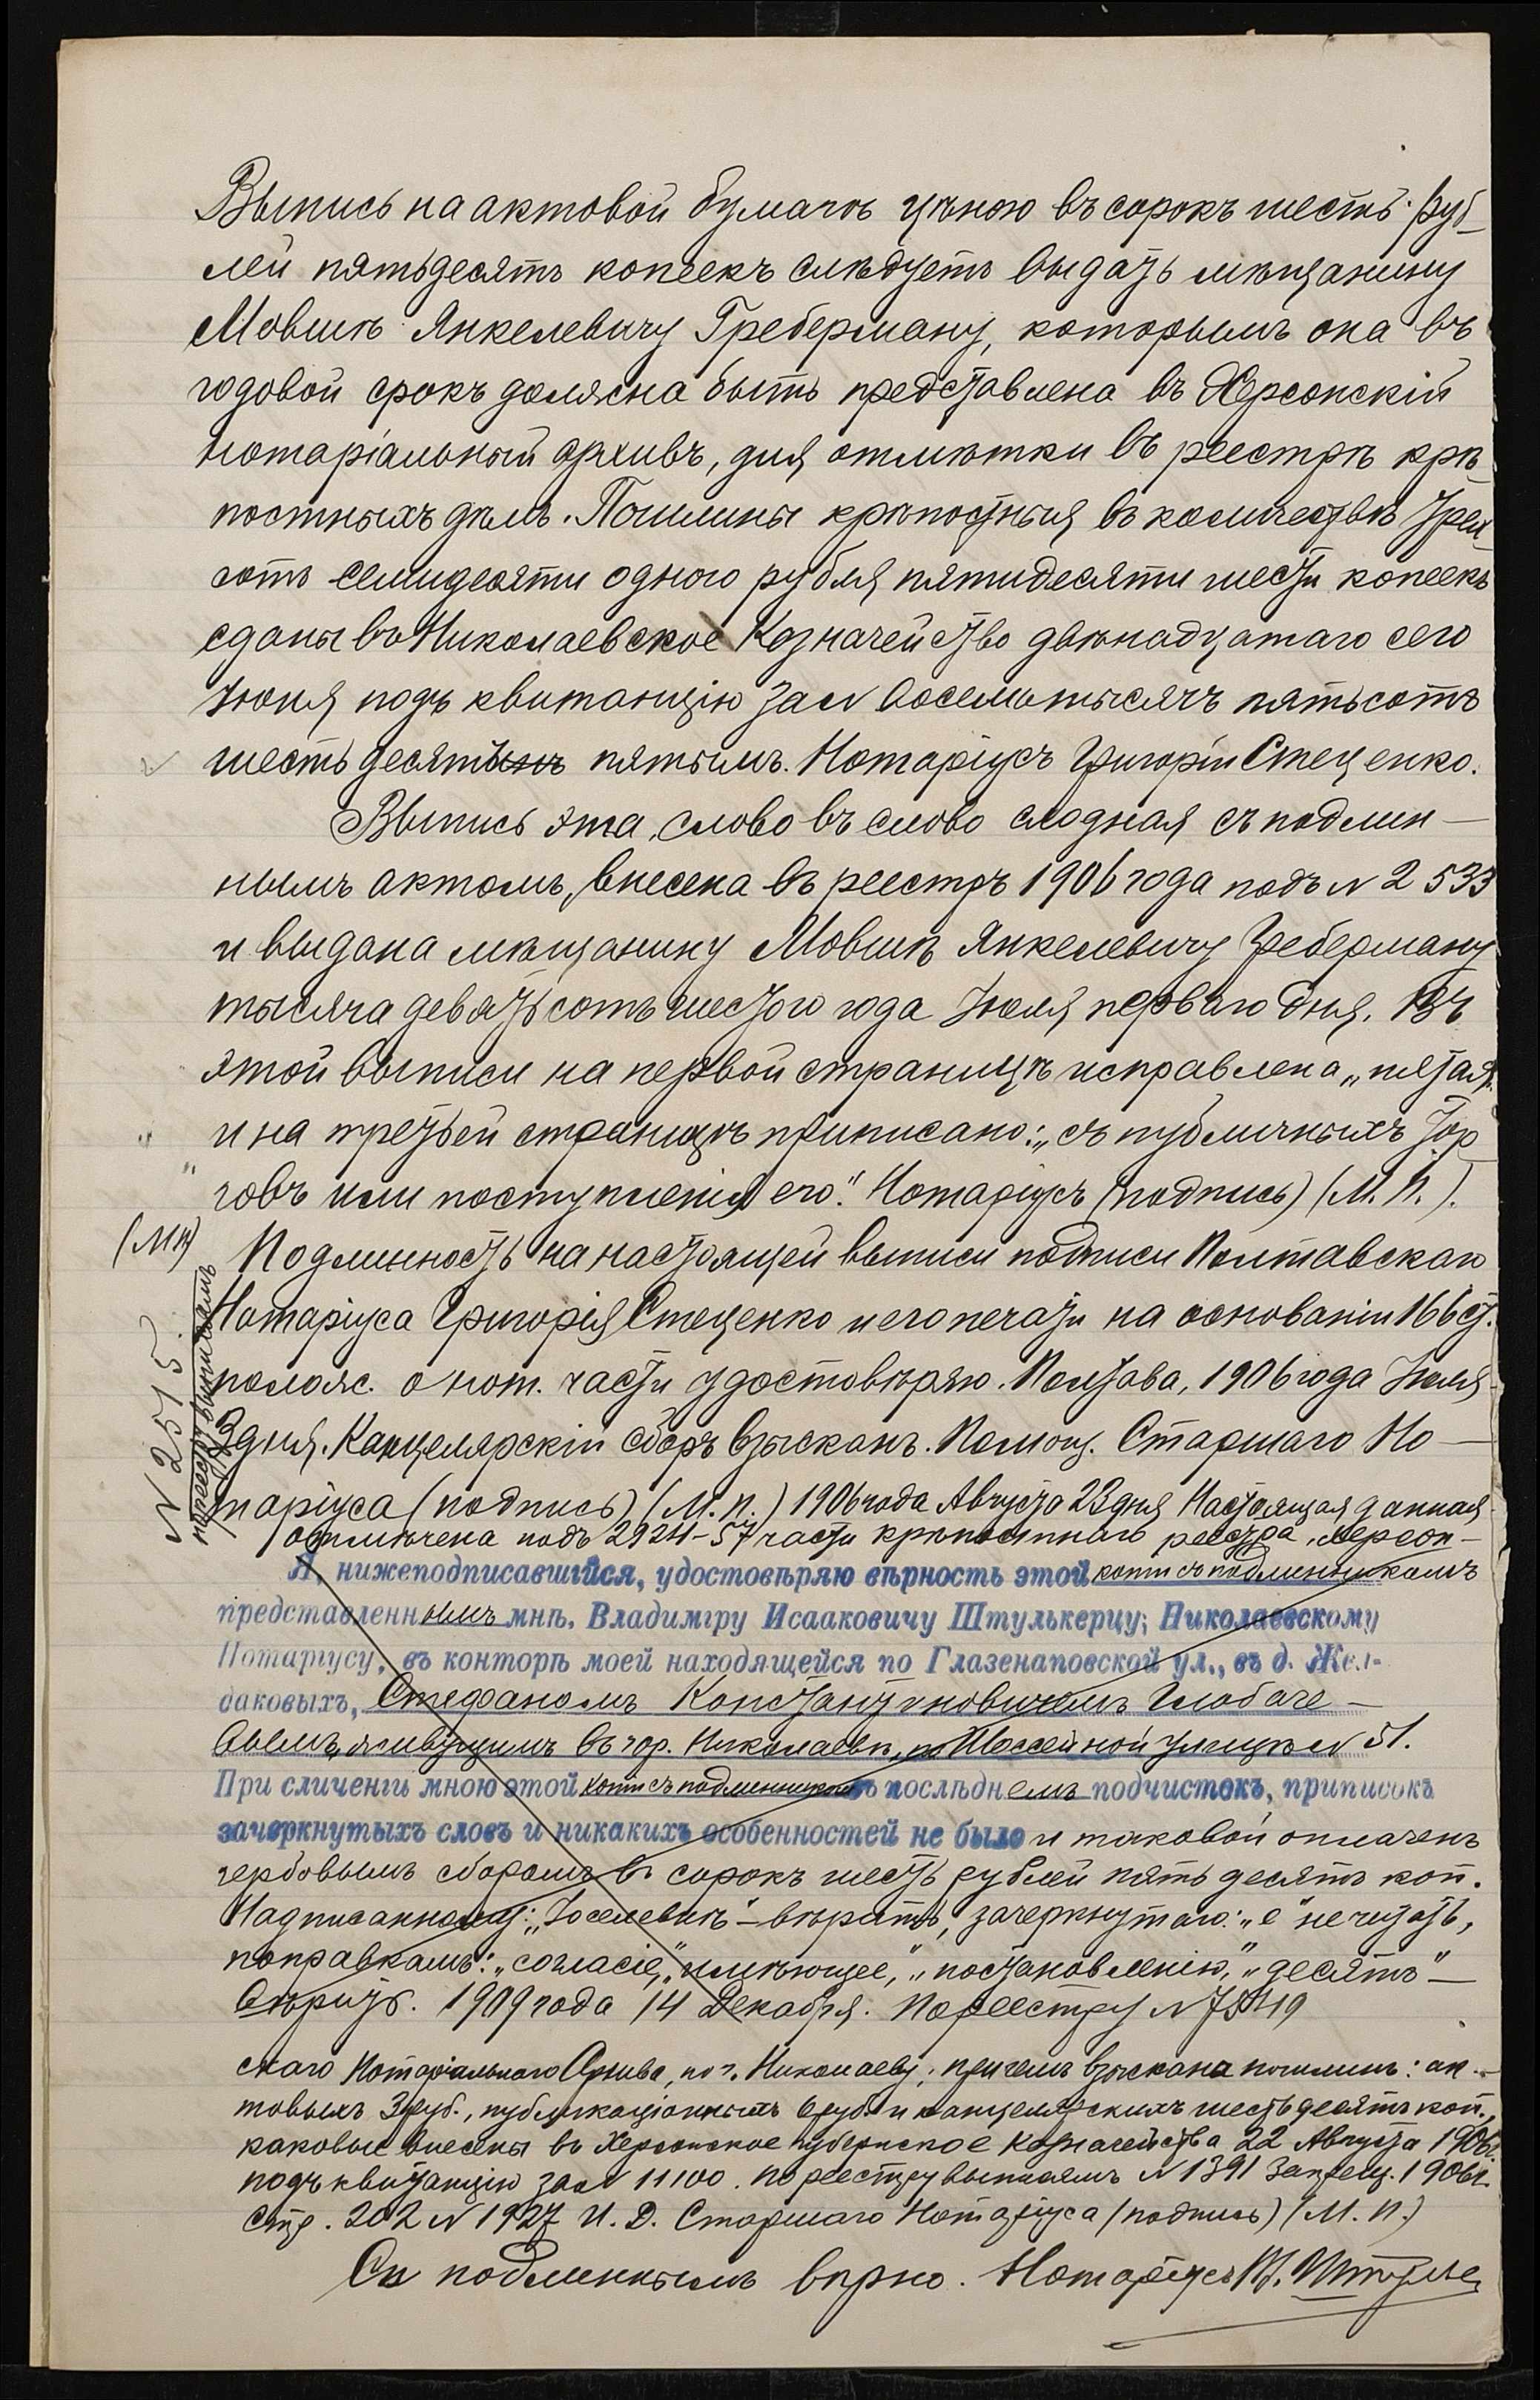 Выпись на актовой бумагѣ цѣною въ сорокъ шесть руб-
лей пятьдесятъ копѣекъ слѣдуетъ выдать мѣщанину
Мовшѣ Янкелевичу Греберману, которымъ она въ
годовой срокъ должна быть представлена въ Херсонскій
нотаріальный архивъ, для отмѣтки въ реестрѣ крѣ-
постныхъ дѣлъ. Пошлины крѣпостныя въ количествѣ трех-
сотъ семидесяти одного рубля пятидесяти шести копеекъ
сданы въ Николаевское Казначейство двѣнадцатаго сего
Іюня подъ квитанцію за N восемь тысячъ пятьсотъ
шестьдесятъ пятымъ. Нотаріусъ Григорій Стеценко.
Выпись эта, слово въ слово сходная съ подлин-
нымъ актомъ, внесена въ реестръ 1906 года подъ N 2533
и выдана мѣщанину Мовшѣ Янкелевичу Греберману
тысяча девятьсотъ шестого года Іюля перваго дня. Въ
этой выписи на первой страницѣ исправлена „пятая"
и на третьей страницѣ приписано: „съ публичныхъ тор-
говъ или поступленія его". Нотаріусъ (подпись) (М. П.).
(МП) Подлинность на настоящей выписи подписи Полтавскаго
Нотаріуса Григорія Стеценко и его печати на основаніи 166 ст.
полож. о нот. части удостовѣряю. Полтава, 1906 года Іюля
3 дня. Канцелярскій сборъ взысканъ. Помощ. Старшаго Но-
таріуса (подпись) (М. П.) 1906 года Августа 23 дня Настоящая данная
N 2515
по реестру выписямъ
отмѣчена подъ 2924-57 части крѣпостнаго реестра, Херсон-
Я, нижеподписавшійся, удостовѣряю вѣрность этой копіи съ подлинникомъ
представленнымъ мнѣ, Владиміру Исааковичу Штулькерцу, Николаевскому
Нотаріусу, въ конторѣ моей находящейся по Глазенаповской ул., въ д. Жел-
даковыхъ, Стефаномъ Константиновичемъ Глобаче-
вымъ, живущимъ въ гор. Николаевѣ, по Шоссейной улицѣ N 51.
При сличеніи мною этой копіи съ подлинникомъ въ послѣднемъ подчистокъ, приписокъ
зачеркнутыхъ словъ и никакихъ особенностей не было и таковой оплаченъ
гербовымъ сборомъ въ сорокъ шесть рублей пятьдесятъ коп.
Надписанному: „Іоселевичъ" – вѣрить, зачеркнутаго: „е" не читать,
поправкамъ: „согласіе", „имѣющее", „постановленію", „десятъ" –
вѣрить. 1909 года 14 Декабря. По реестру N
скаго Нотаріальнаго Архива, по г. Николаеву; причемъ взыскана пошлинъ: ак-
товыхъ 3 руб., публикаціонныхъ руб. и канцелярскихъ шестьдесятъ коп.,
каковые внесены въ Херсонское губернское Казначейства 22 Августа 1906г.
подъ квитанцію за N 11100. По реестру выписямъ N 1391 Запрещ. 1906 г.
Стр. 202 N 1927 И. Д. Старшаго Нотаріуса (подпись) (М. П.)
Съ подлиннымъ вѣрно. Нотаріусъ